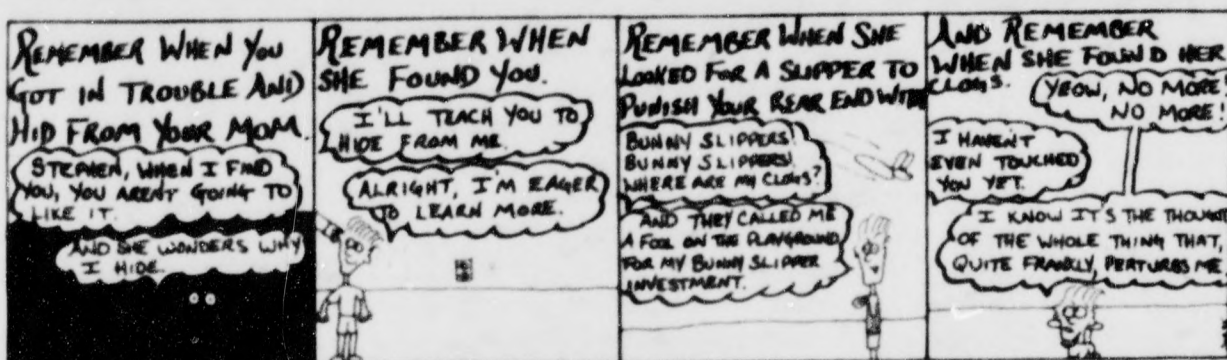 REMEMBER WHEN YOU
GOT IN TROUBLE AND
HID FROM YOUR MOM.
STEPHEN, WHEN I FIND
YOU, YOU ARENT GOING TO
LIKE IT.
AND SHE WONDERS WHY
I HIDE.
REMEMBER WHEN
SHE FOUND YOU.
I'LL TEACH YOU TO
HIDE FROM ME.
ALRIGHT, I'M EAGER
TO LEARN MORE.
REMEMBER WHEN SHE
LOOKED FOR A SLIPPER TO
PUNISH YOUR REAR END WITH
BUNNY SLIPPERS!
BUNNY SLIPPERS!
WHERE ARE MY CLOGS?
AND THEY CALLED ME
A FOOL ON THE PLAYGROUND
FOR MY BUNNY SLIPPER
INVESTMENT.
AND REMEMBER
WHEN SHE FOUND HER
CLOGS.
YEOW, NO MORE!
NO MORE!
I HAVEN'T
EVEN TOUCHED
YOU YET.
I KNOW IT'S THE THOUGHT
OF THE WHOLE THING THAT,
QUITE FRANKLY, PERTURBS ME